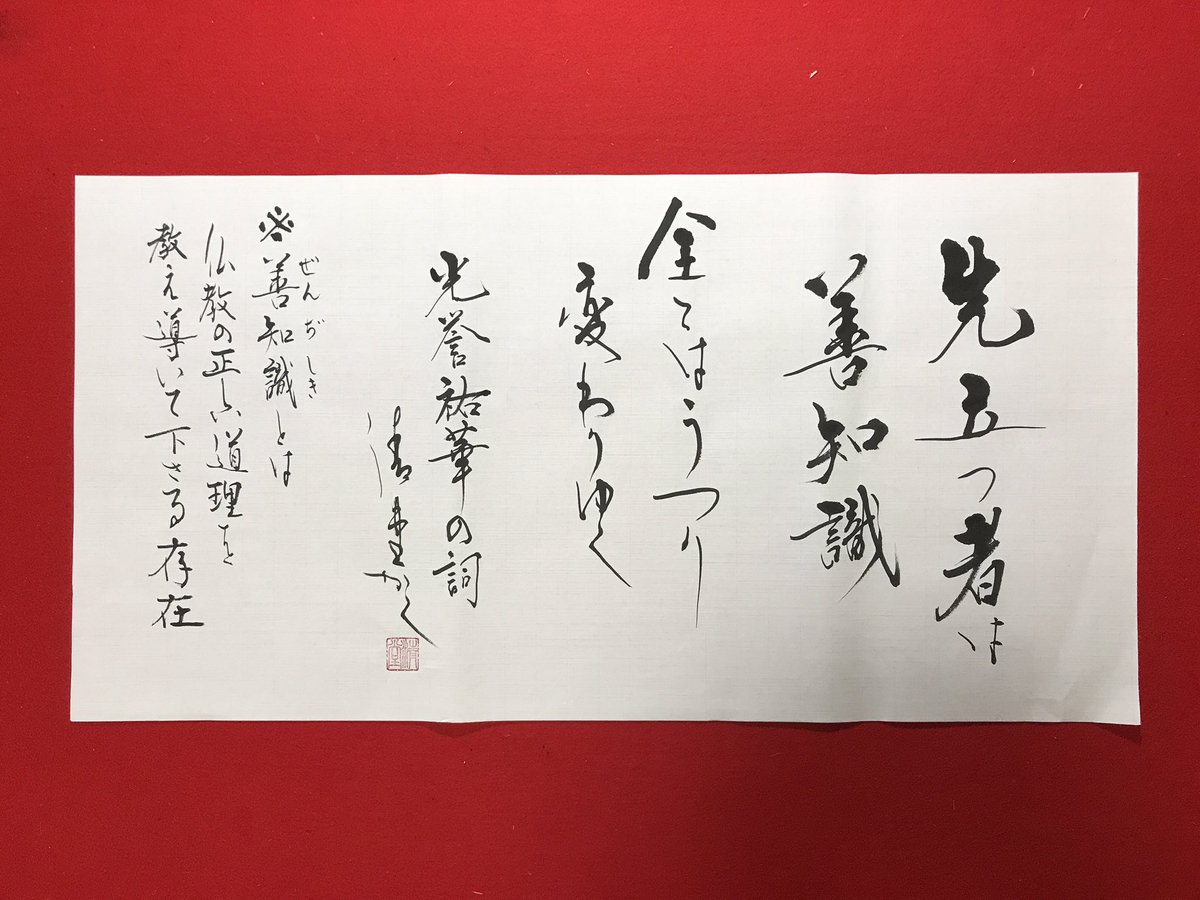 先立つ者は
善知識
全てはうつり
変わりゆく
光誉祐華の詞
清堂かく
清堂
※善知識とは
ぜんぢしき
仏教の正しい道理を
教え導いて下さる存在